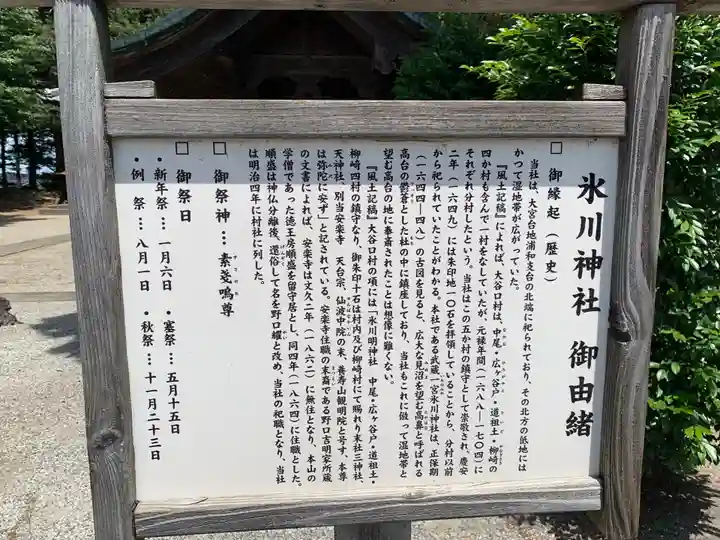 氷川神社 御由緒
□ 御縁起（歴史）
当社は、大宮台地浦和支台の北端に祀られており、その北方の低地には
かつて湿地帯が広がっていた。
『風土記稿』によれば、大谷口村は、中尾・広ヶ谷戸・道祖土・柳崎の
四か村も含んで一村をなしていたが、元禄年間（一六八八―一七〇四）に
それぞれ分村したという。当社はこの五か村の鎮守として崇敬され、慶安
二年（一六四九）には朱印地一〇石を拝領していることから、分村以前
から祀られていたことがわかる。本社である武蔵一宮氷川神社は、正保期
（一六四四―四八）の古図を見ると、広大な見沼を望む高鼻と呼ばれる
高台の鬱蒼とした杜の中に鎮座しており、当社もこれに倣って湿地帯を
望む高台の地に奉斎されたことは想像に難くない。
『風土記稿』大谷口村の項には「氷川明神社 中尾・広ヶ谷戸・道祖土・
柳崎四村の鎮守なり、御朱印十石は村内及び柳崎村にて賜れり末社三神社、
天神社、別当安楽寺 天台宗、仙波中院の末、養寿山観明院と号す、本尊
は弥陀に安ず」と記されている。安楽寺住職の末裔である野口吉明家所蔵
の文書によれば、安楽寺は文久二年（一八六二）に無住となり、本山の
学僧であった徳王房順盛を留守居とし、同四年（一八六四）に住職とした。
順盛は神仏分離後、還俗して名を野口糺と改め、当社の祀職となり、当社
は明治四年に村社に列した。
□ 御祭神… 素戔嗚尊
□ 御祭日
・新年祭… 一月六日 ・塞祭… 五月十五日
・例 祭… 八月一日 ・秋祭… 十一月二十三日